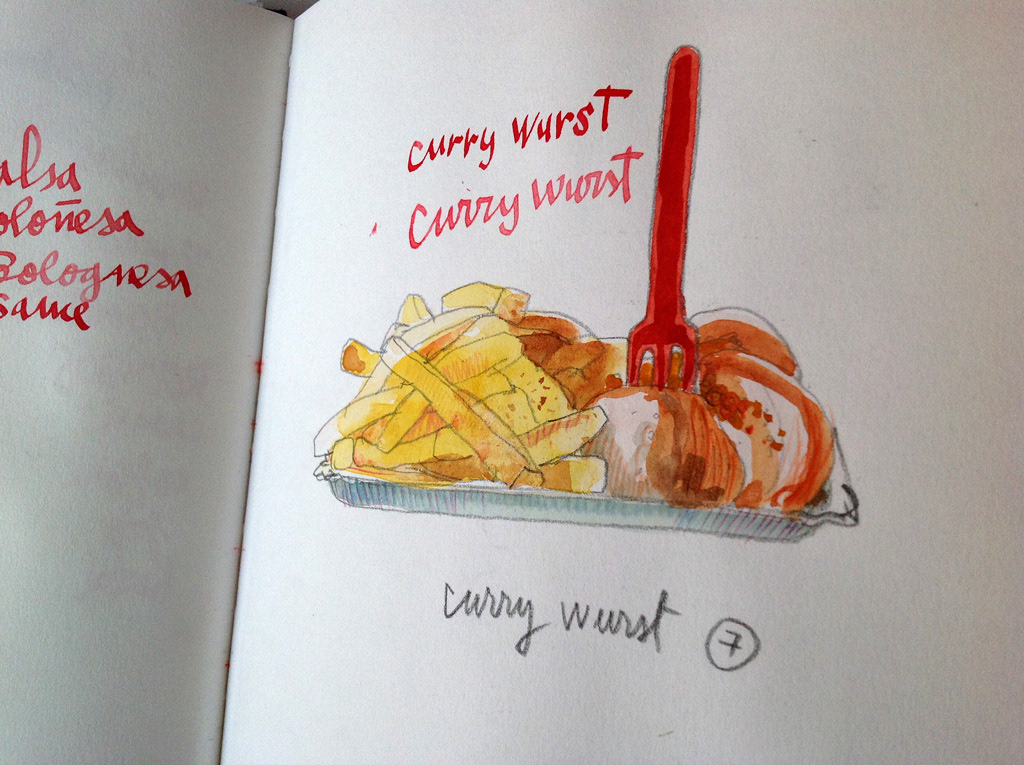 alsa
oloñesa
Bolognesa
same
curry wurst
curry wurst
curry wurst 7